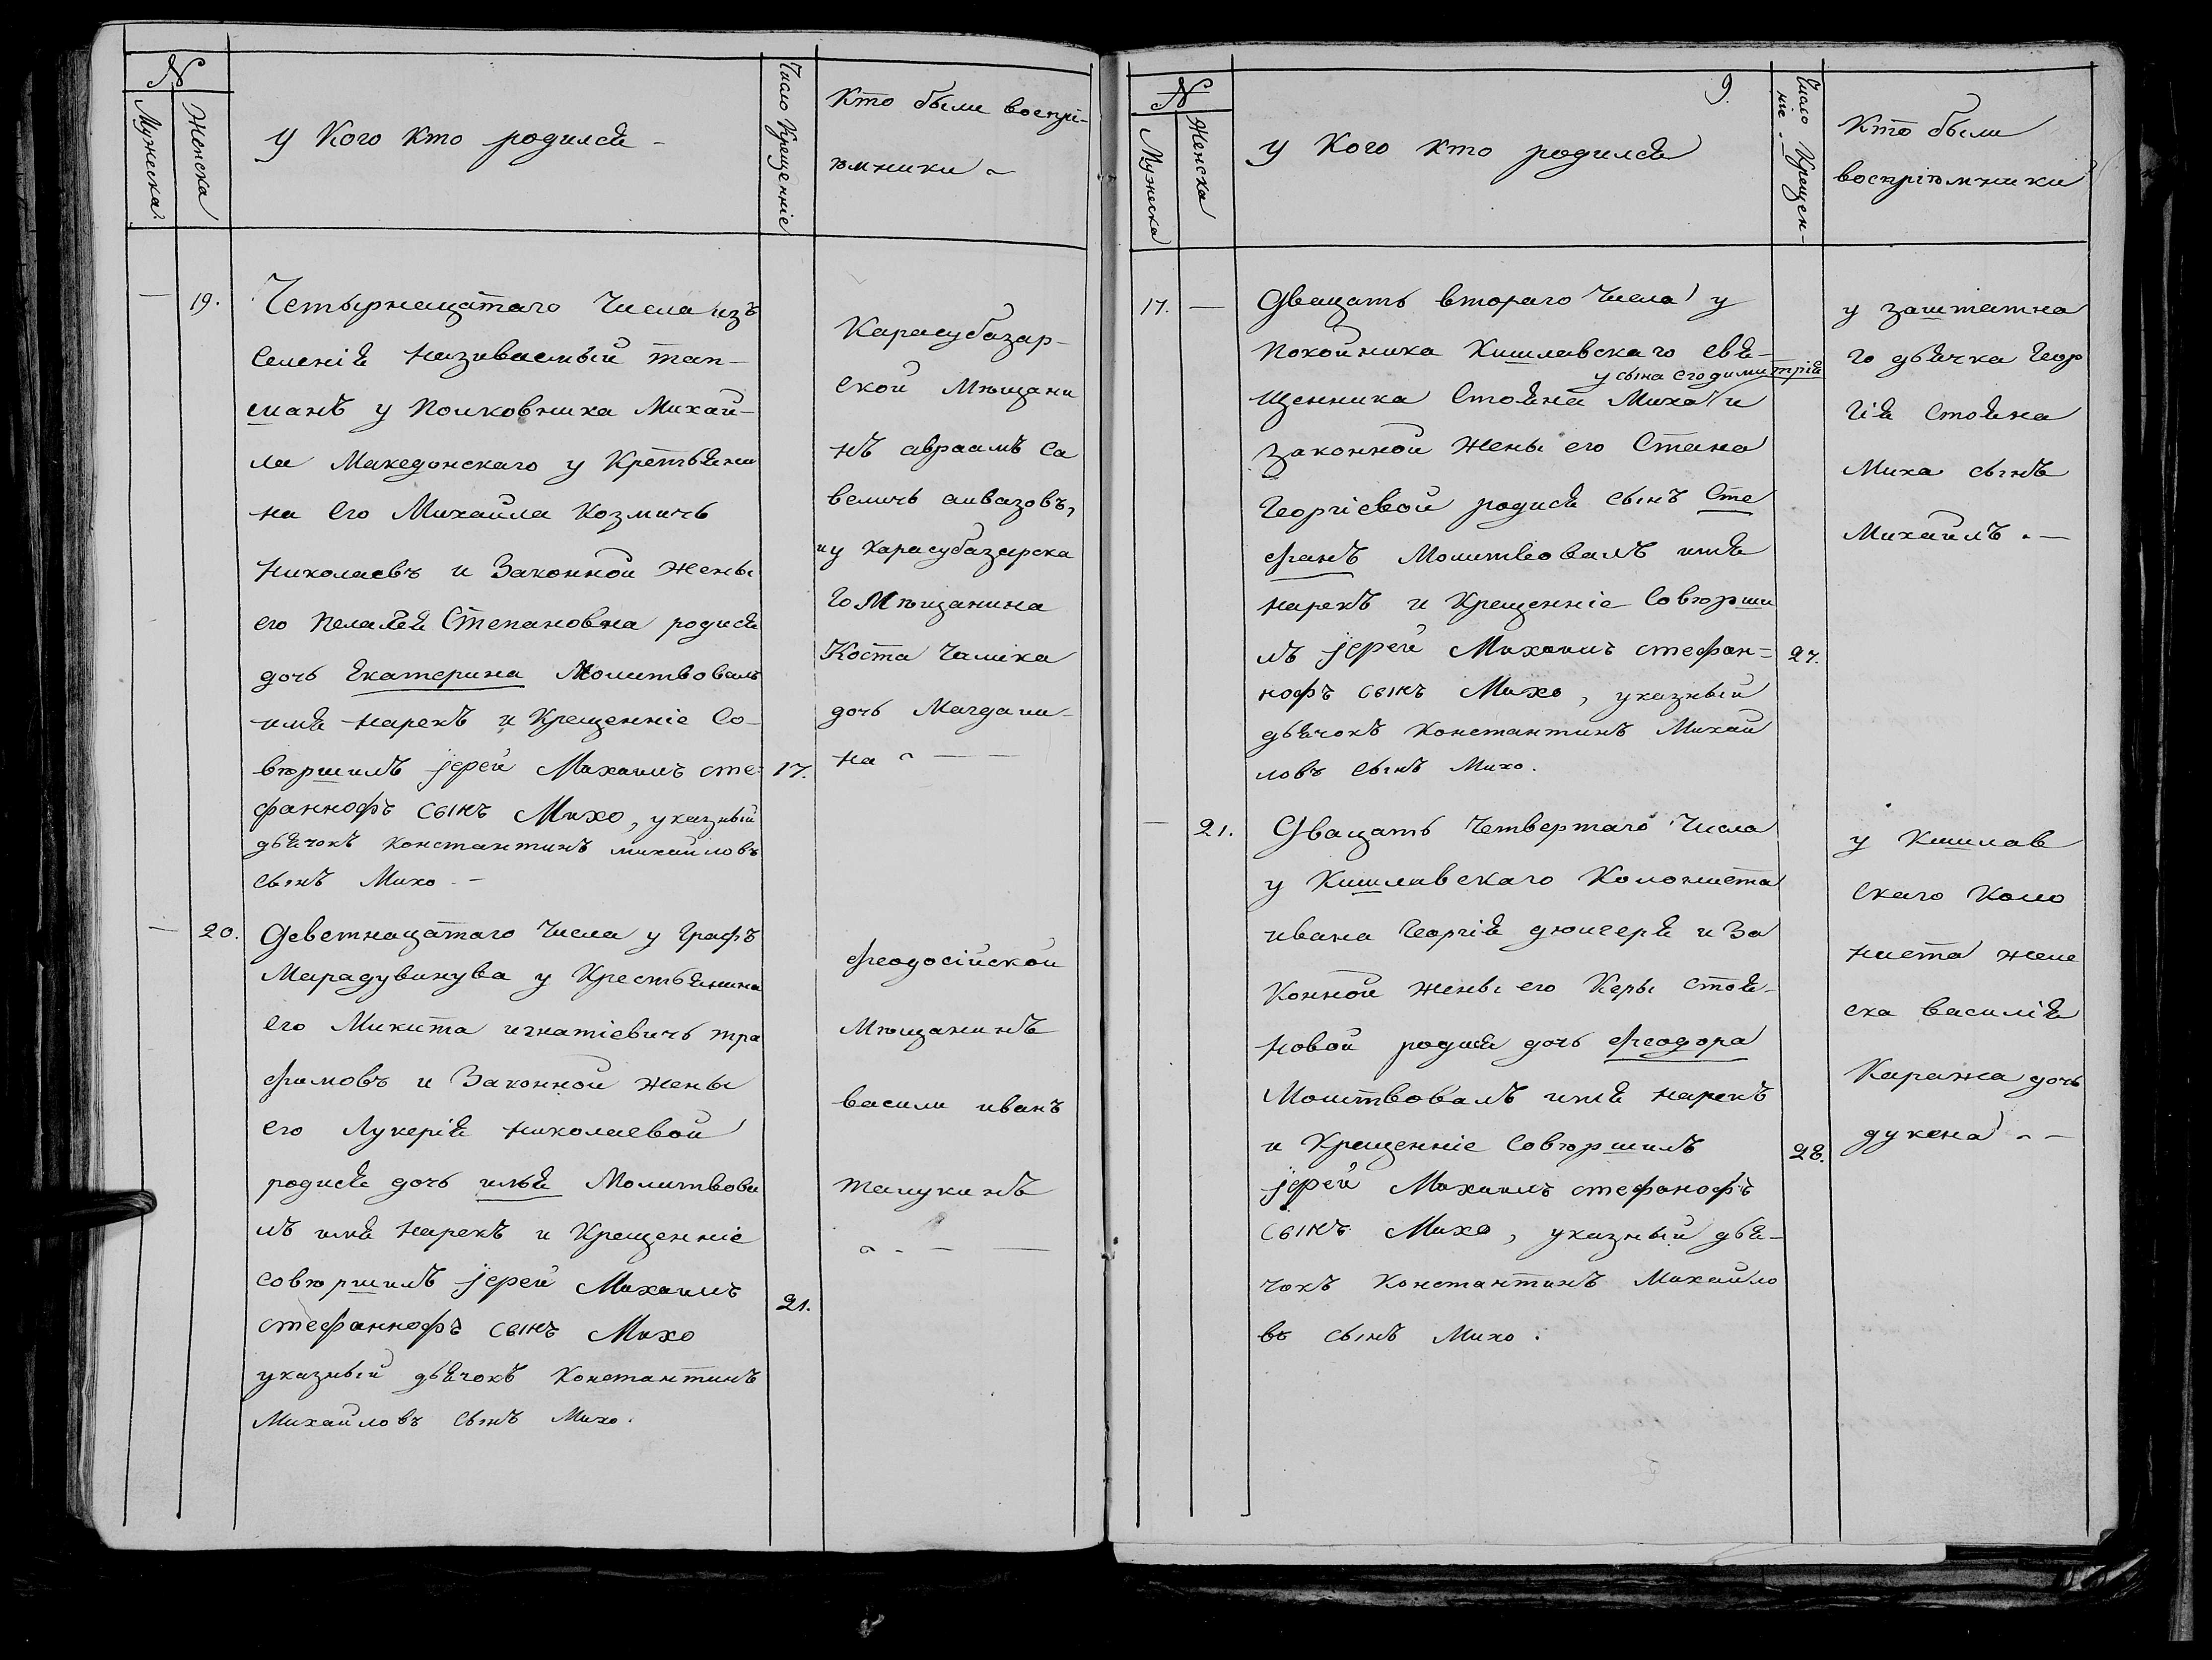 N
Мужеска
Женска
У Кого кто родился -
Число Крещенніе
Кто были воспрі-
юмники
19.
Четырнецатаго Числа изъ
Селенія називаемый тап-
шанъ у Полковника Михай-
ла Македонскаго у Кретьяни
на Его Михайла Козмичъ
Николаевъ и Законной жены
его Пелагея Степановна родися
дочь Екатерина Молитвовалъ
имя нарекъ и Крещенніе Со-
вюршилъ іерей Михаилъ сте-
фанноѳъ сынъ Михо, указный
дьячокъ Константинъ михайловъ
сынъ Михо -
17.
Карасубазар-
ской Мющани
нъ авраамъ са
величь аивазовъ,
и у Карасубазарска
го Мющанина
Коста Чалика
дочь Магдали-
на
20.
Деветнацатаго Числа у Графъ
Мерадувинува у Крестьянина
его Микита игнатіевичъ тра
фимовъ и Законной жены
его Лукерія Николаевой
родися дочь илья Молитвова
лъ имя нарекъ и Крещенніе
совюршилъ іерей Михаилъ
стефанноѳъ сынъ Михо
указный дьячокъ Константинъ
Михайловъ сынъ Михо.
21.
феодосійской
Мющанинъ
васили иванъ
тапукинъ
9.
N
Мужеска
Женска
У Кого кто родился
Число Крещен-
ніе.
Кто были
воспріюмники
17.
Двацать втораго Числа у
Покойника Кишлавскаго свя-
у сына его димитрія
щенника Стояна Михо и
законной жены его Стана
Георгіевой родися сынъ Сте
фанъ Молитвовалъ имя
нарекъ и Крещенніе Совюрши
лъ іерей Михаилъ стефан-
нофъ сынъ Михо, указный
дьячокъ Константинъ Михай
ловъ сынъ Михо.
27.
у заштатна
го дьячка Геор
гія Стояна
Миха сынъ
Михаилъ. -
21.
Двацать Четвертаго Числа
у Кишлавскаго Колониста
ивана Георгія дюлгеря и За
Конной жены его Керы стоя-
новой родися дочь феодора
Молтвовалъ имя нарекъ
и Крещенніе Совюршилъ
іерей Михаилъ стефаноѳъ
сынъ Михо, указный дья-
чокъ Константинъ Михайло
въ сынъ Михо.
28.
у Кишлав
скаго Коло
ниста желе
ска василія
Каража дочь
дукена